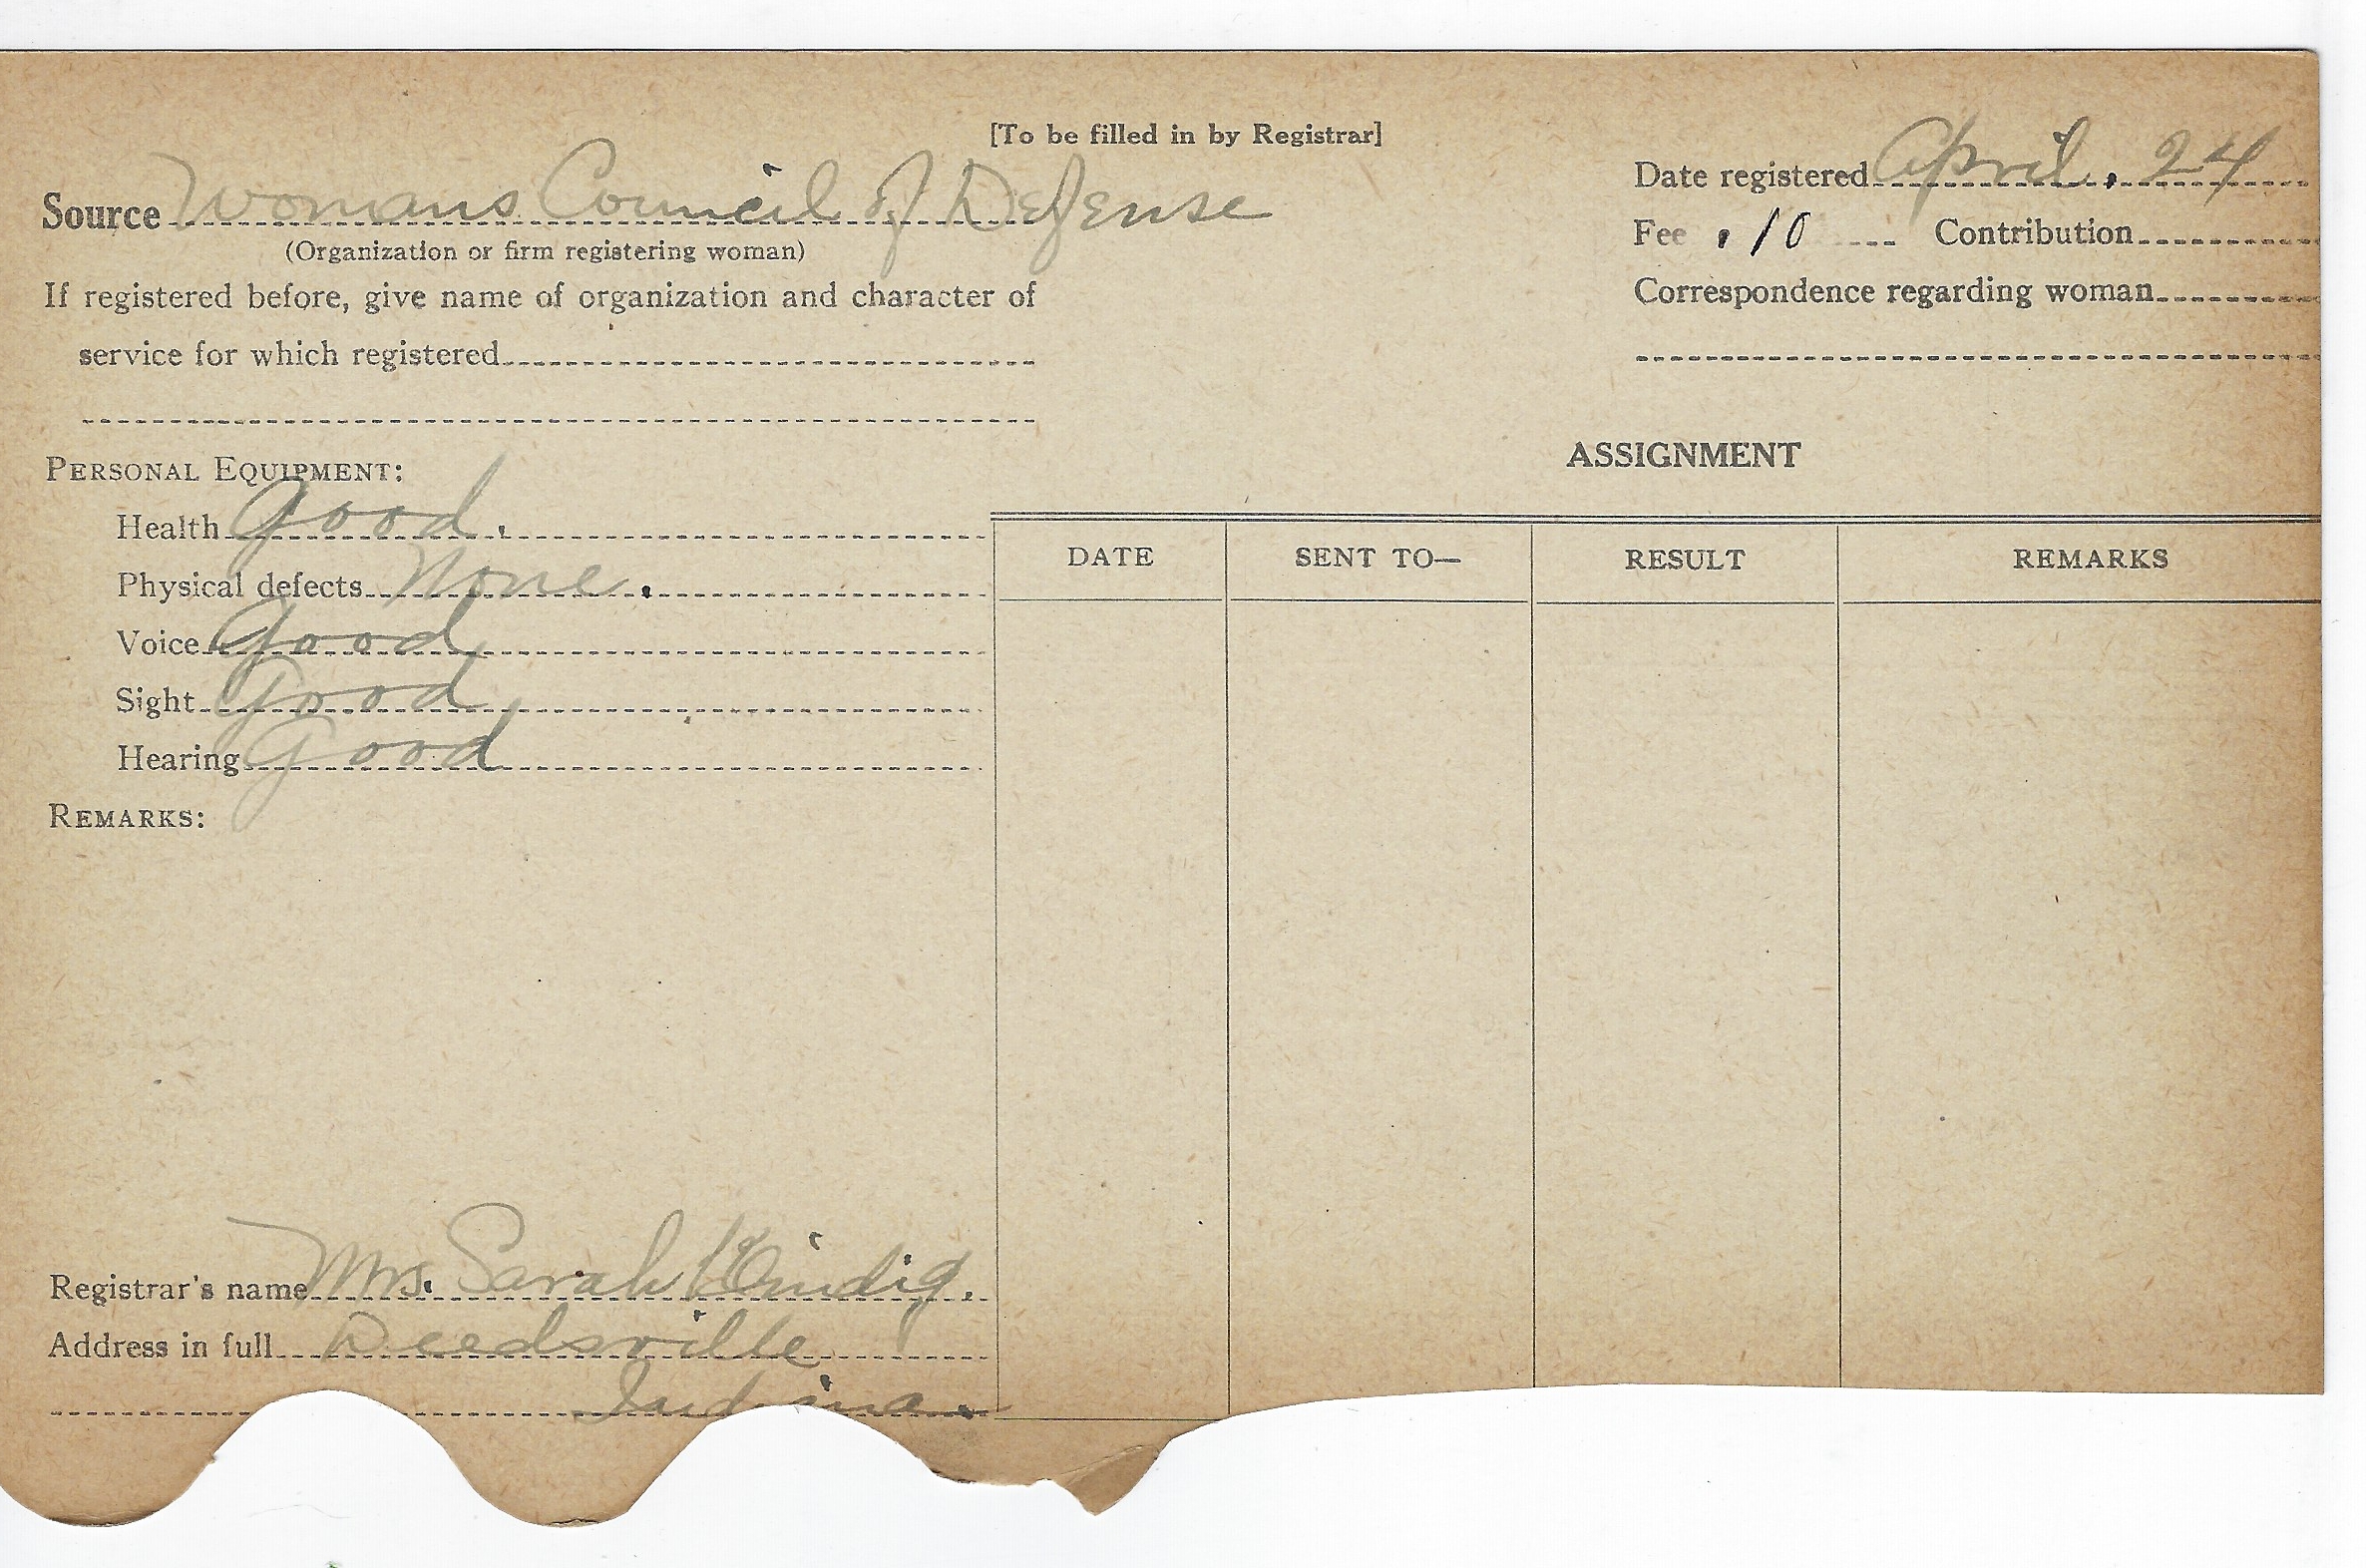 [To be filled in by Registrar]
Source Womans Council of Defense
(Organization or firm registering woman)
If registered before, give name of organization and character of
service for which registered
Date registered April. 24
Fee .10 Contribution
Correspondence regarding woman
PERSONAL EQUIPMENT:
Health Good.
Physical defects None.
Voice Good
Sight Good
Hearing Good
REMARKS:
ASSIGNMENT
DATE SENT TO— RESULT REMARKS
Registrar's name Mrs. Sarah
Address in full Deedsville
Indiana.